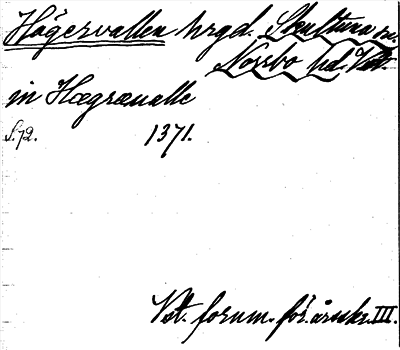 Högersvallen hrgd. Skultuna sn.
Norrbo hd. Vstl.
in Hægræualle
S. 72. 1371.
Vst. fornm. för. årsskr. III.